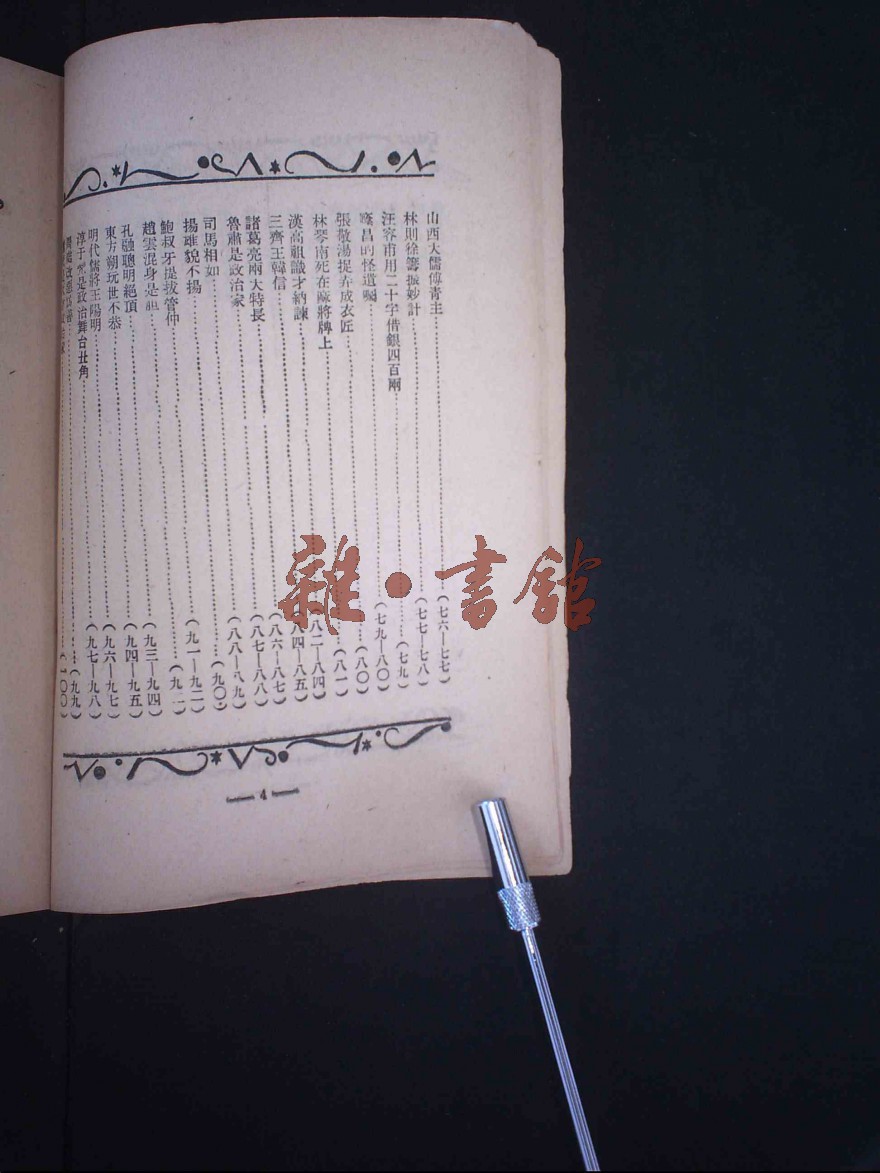 山西大儒傅青主…………(七六—七七)
林則徐籌振妙計…………(七七—七八)
汪容甫用二十字借銀四百兩…………(七九)
昌的怪遺囑…………(八〇)
張敬湯捉弄成衣匠…………(八一)
林琴南死在麻將牌上…………(八二—八四)
漢高祖識才納諫…………(八四—八五)
三齊王韓信…………(八六—八七)
諸葛亮兩大特長…………(八七—八八)
魯肅是政治家…………(八八—八九)
司馬相如…………(九〇)
揚雄貌不揚…………(九一—九二)
鮑叔牙提拔管仲…………(九二)
趙雲混身是胆…………(九三—九四)
孔融聰明絕頂…………(九四—九五)
東方朔玩世不恭…………(九六—九七)
明代儒將王陽明…………(九七—九八)
淳于髠是政治舞台丑角…………(九九)
(一〇〇)
4
雜·書館